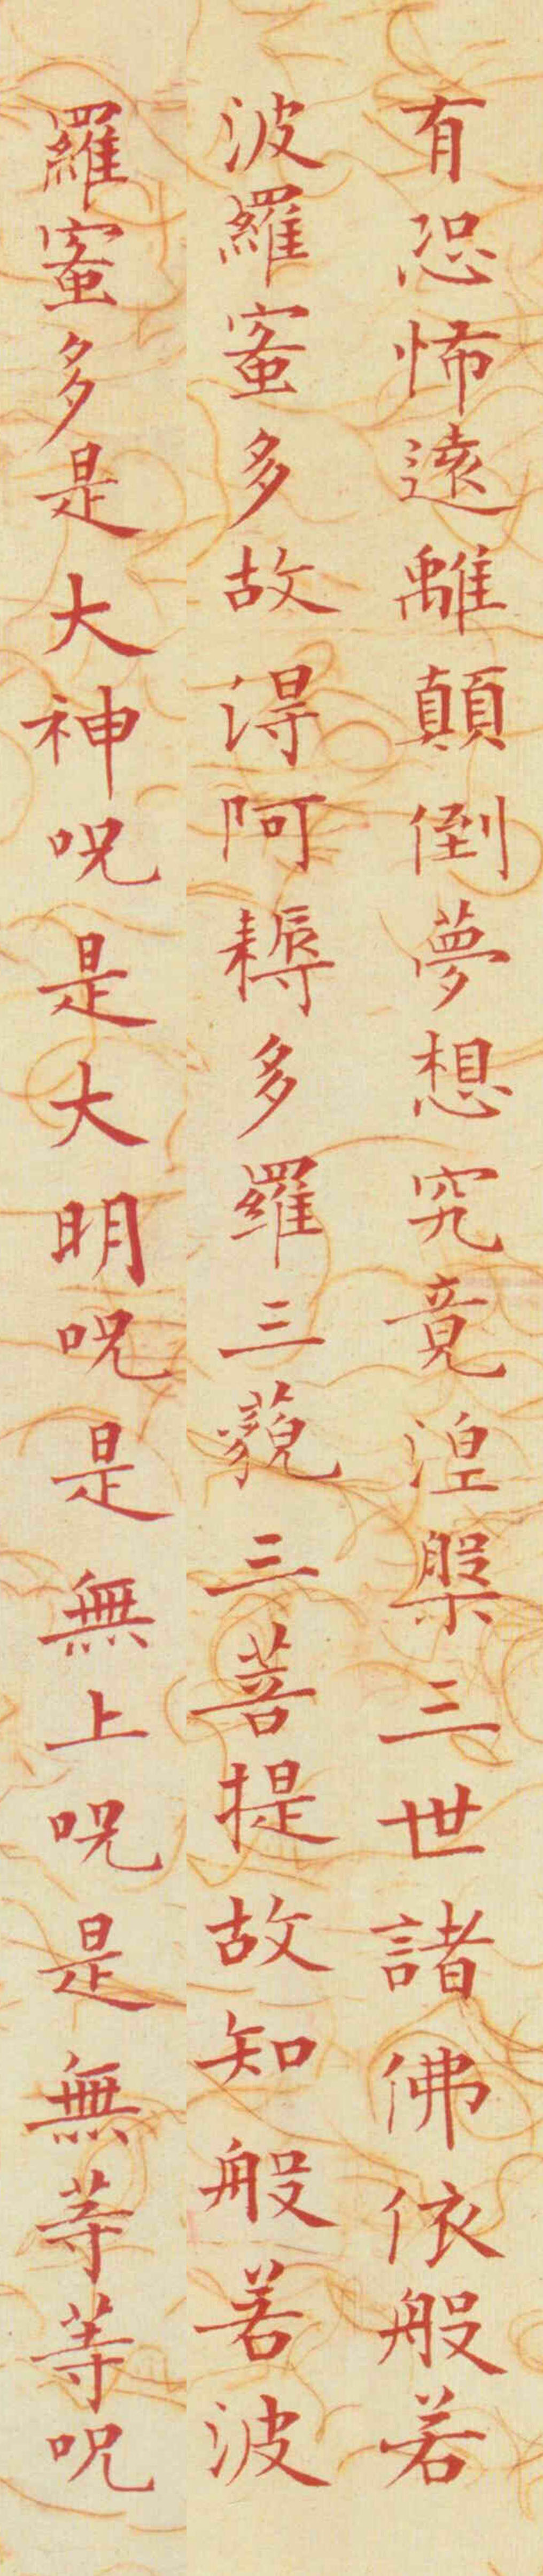 有恐怖遠離顛倒夢想究竟涅槃三世諸佛依般若
波羅蜜多故得阿耨多羅三藐三菩提故知般若波
羅蜜多是大神呪是大明呪是無上呪是無等等呪